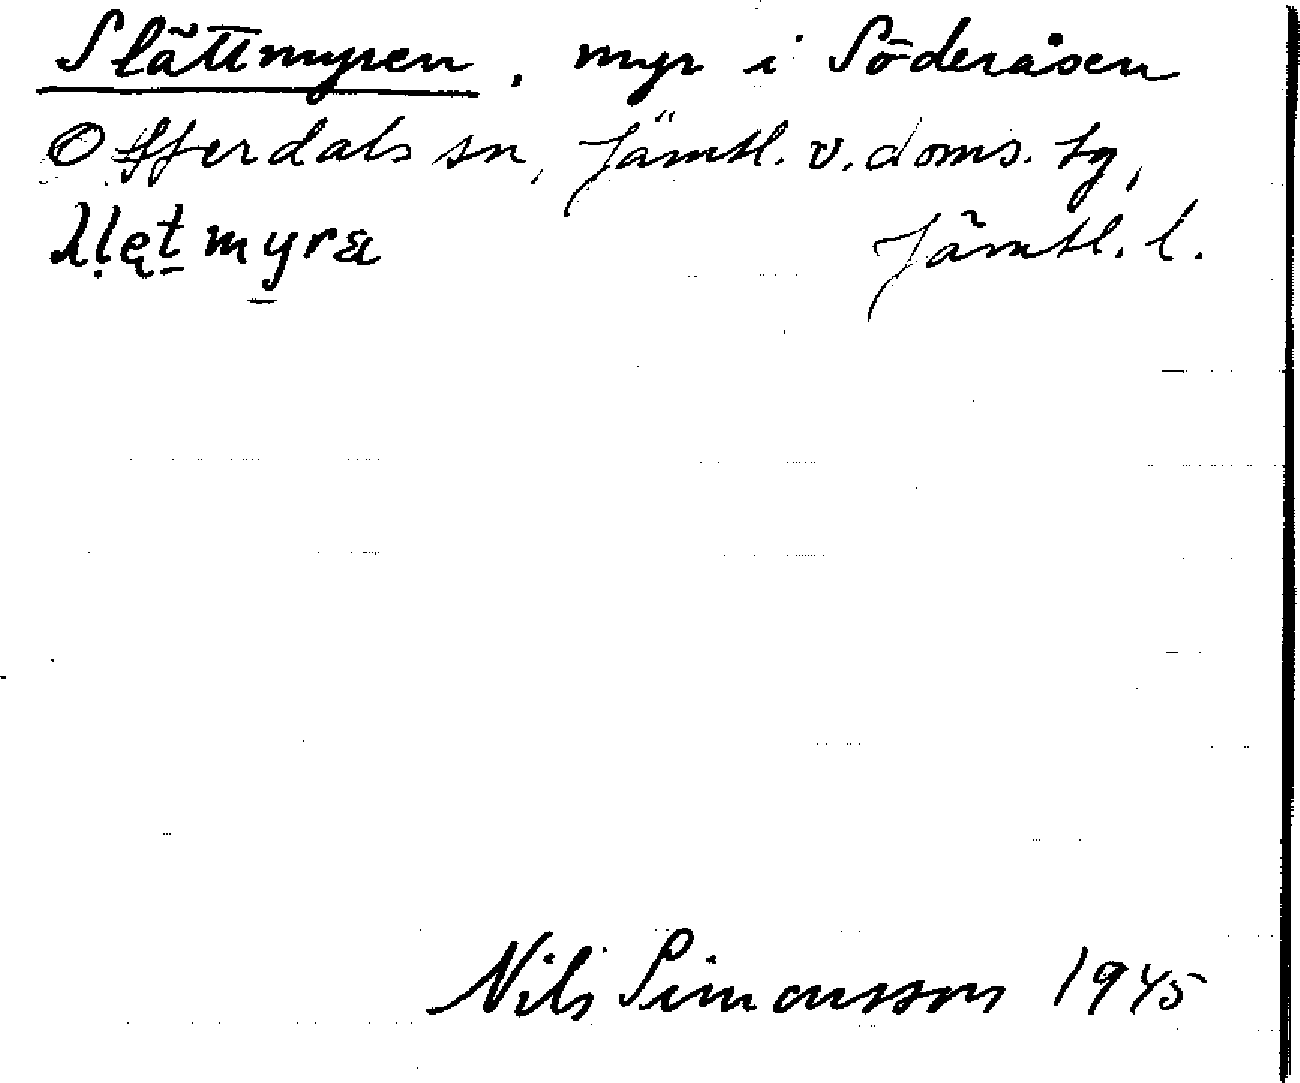 Slättmyren, myr i Söderåsen
Offerdals sn, Jämtl. v. doms. tg,
Jämtl. l.
Nils Simonsson 1945